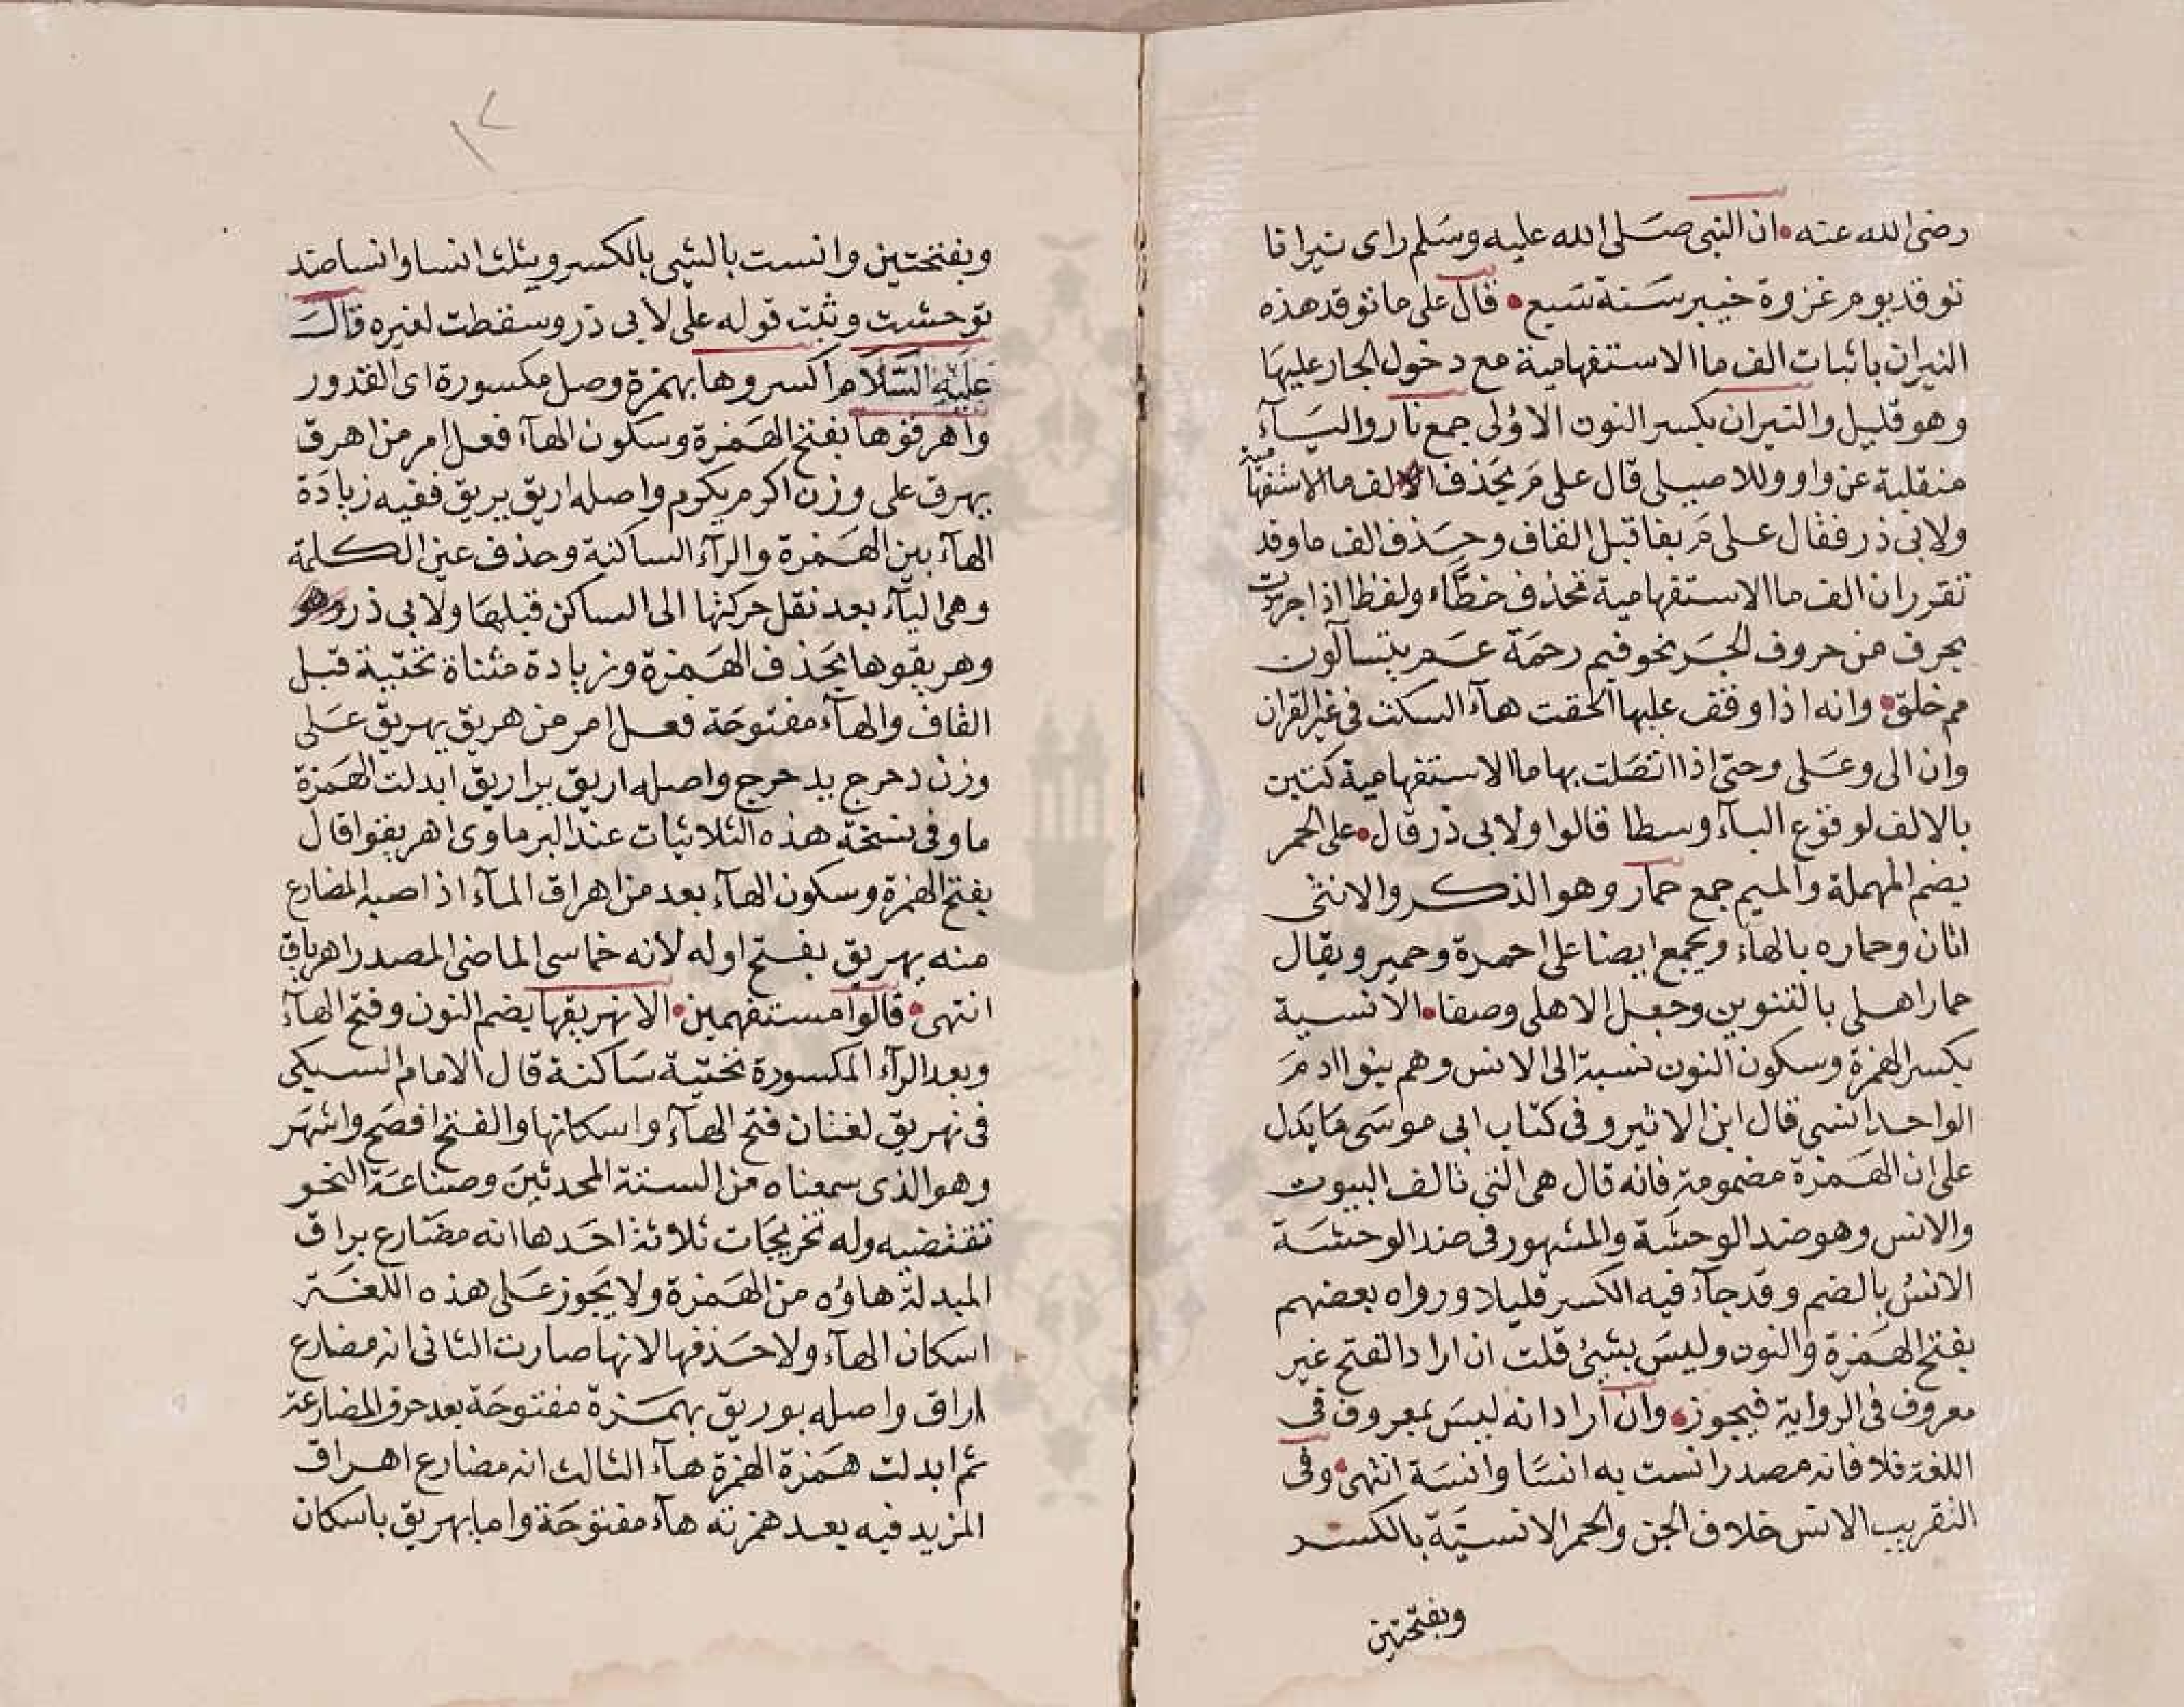 رضى الله عنه • ان النبى صلى الله عليه وسلم راى نيرانا
توقد يوم غزوة خيبر سنة سبع • قال على ما توقد هذه
النيران باثبات الف ما الاستفهامية مع دخول الجار عليها
وهو قليل والنيران بكسر النون الاولى جمع نار والياء
منقلبة عن واو وللاصيلى قال على م بحذف الف ما الاستفهامية
ولابى ذر فقال على م بفا قبل القاف وحذف الف ما وقد
تقرر ان الف ما الاستفهامية تحذف خطاء ولفظا اذا جرت
بحرف من حروف الجر نحو فيم رحمة عم يتسآلون
مم خلق • وانه اذا وقف عليها الحقت هآء السكت فى غير القران
وان الى وعلى وحتى اذا اتصلت بها ما الاستفهامية كتبن
بالالف لوقوع البآء وسطا قالوا ولابى ذر قال • على الحمر
بضم المهملة والميم جمع حمار وهو الذكر والانثى
اتان وحماره بالهاء ويجمع ايضا على احمرة وحمير ويقال
حمار اهلى بالتنوين وجعل الاهلى وصفا • الانسية
بكسر الهمزة وسكون النون نسبة الى الانس وهم بنوا ادم
الواحد انسى قال ابن الاثير وفى كتاب ابى موسى ما يدل
على ان الهمزة مضمومة فانه قال هى التى تالف البيوت
والانس وهو ضد الوحشة والمشهور فى ضد الوحشة
الانس بالضم وقد جآء فيه الكسر قليلا ورواه بعضهم
بفتح الهمزة والنون وليس بشىء قلت ان اراد الفتح غير
معروف فى الرواية فيجوز • وان اراد انه ليس بمعروف فى
اللغة فلا فانه مصدر انست به انسا وانسة انتهى • وفى
التقريب الانس خلاف الجن والحمر الانسية بالكسر
وبفتحتين
وبفتحتين وانست بالشى بالكسر ويثلث انسا وانسا ضد
توحشت وثبت قوله على لابى ذر وسقطت لغيره قال
عليه السلام اكسروها بهمزة وصل مكسورة اى القدور
واهرقوها بفتح الهمزة وسكون الهآء فعل امر من اهرق
يهرق على وزن اكرم يكرم واصله اريق يريق ففيه زيادة
الهآء بين الهمزة والرآء الساكنة وحذف عين الكلمة
وهى اليآء بعد نقل حركتها الى الساكن قبلها ولابى ذر
وهريقوها بحذف الهمزة وزيادة مثناة تحتية قبل
القاف والهآء مفتوحة فعل امر من هريق يهريق على
وزن دحرج يدحرج واصله اريق يراريق ابدلت الهمزة
ما وفى نسخة هذه الثلاثيات عند البرماوى اهريقوا قال
بفتح الهمزة وسكون الهآء بعد من اهراق المآء اذا صبه المضارع
منه يهريق بفتح اوله لانه خماسى الماضى المصدر اهرياق
انتهى • قالوا مستفهمين • الا نهريقها بضم النون وفتح الهآء
وبعد الرآء المكسورة تحتية ساكنة قال الامام السبكى
فى نهريق لغتان فتح الهآء واسكانها والفتح افصح واشهر
وهو الذى سمعناه من السنة المحدثين وصناعة النحو
تقتضيه وله تخريجات ثلاثة احدها انه مضارع براق
المبدلة هاؤه من الهمزة ولا يجوز على هذه اللغة
اسكان الهآء ولا حذفها لانها صارت الثانى انه مضارع
اراق واصله يوريق بهمزة مفتوحة بعد حرف المضارعة
ثم ابدلت همزة الهمزة هآء الثالث انه مضارع اهراق
المزيد فيه بعد همزته هآء مفتوحة واما يهريق باسكان